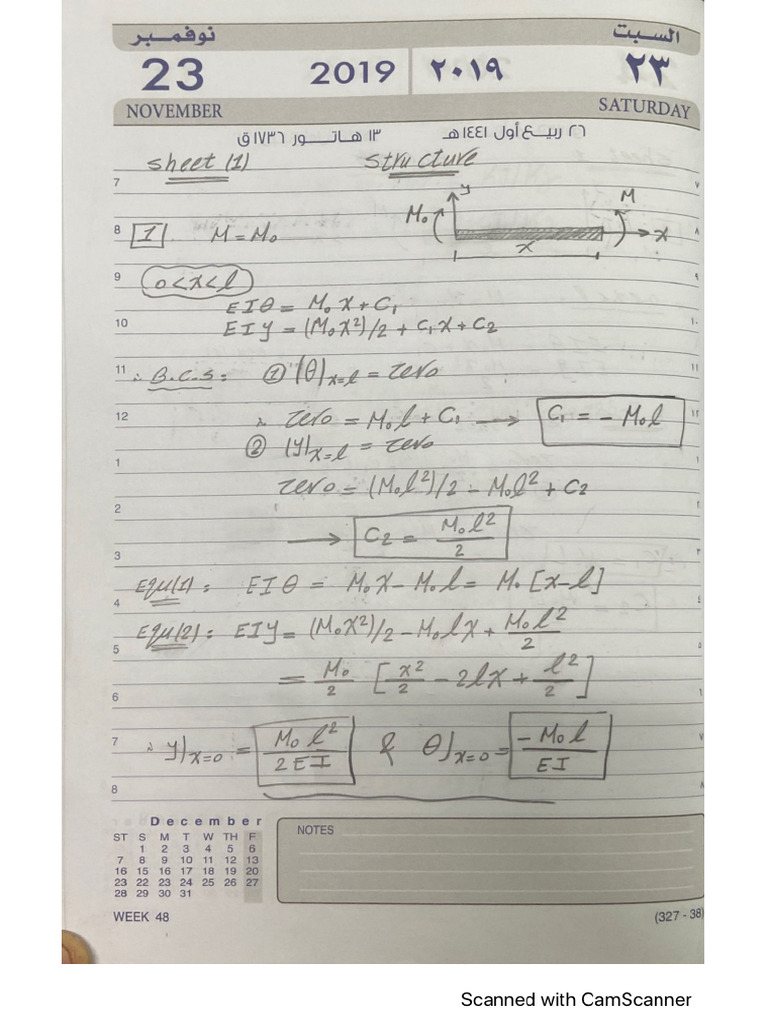 نوفمبر السبت
23 2019 ٢٠١٩ ٢٣
NOVEMBER SATURDAY
١٣ هاتور ١٧٣٦ق ٢٦ ربيع أول ١٤٤١هـ
Sheet (1) Structure
7 ٧
y
M₀ M
8 1 M = M₀ x ٨
x
9 0 < x < l ٩
EIθ = M₀x + C₁
10 EIy = (M₀x²)/2 + C₁x + C₂ ١٠
11 ∴ B.C.S: ① (θ)x=l = zero ١١
12 ∴ zero = M₀l + C₁ → C₁ = - M₀l ١٢
② (y)x=l = zero
1 ١
zero = (M₀l²)/2 - M₀l² + C₂
2 ٢
→ C₂ = M₀l²/2
3 ٣
Equ(1): EIθ = M₀x - M₀l = M₀[x-l]
4 ٤
Equ(2): EIy = (M₀x²)/2 - M₀lx + M₀l²/2
5 ٥
= M₀/2 [x²/2 - 2lx + l²/2]
6 ٦
7 ∴ y)x=0 = M₀l²/2EI & θ)x=0 = -M₀l/EI ٧
8 ٨
December
ST S M T W TH F
1 2 3 4 5 6
7 8 9 10 11 12 13
16 15 16 17 18 19 20
23 22 23 24 25 26 27
28 29 30 31
NOTES
WEEK 48 (327 - 38)
Scanned with CamScanner